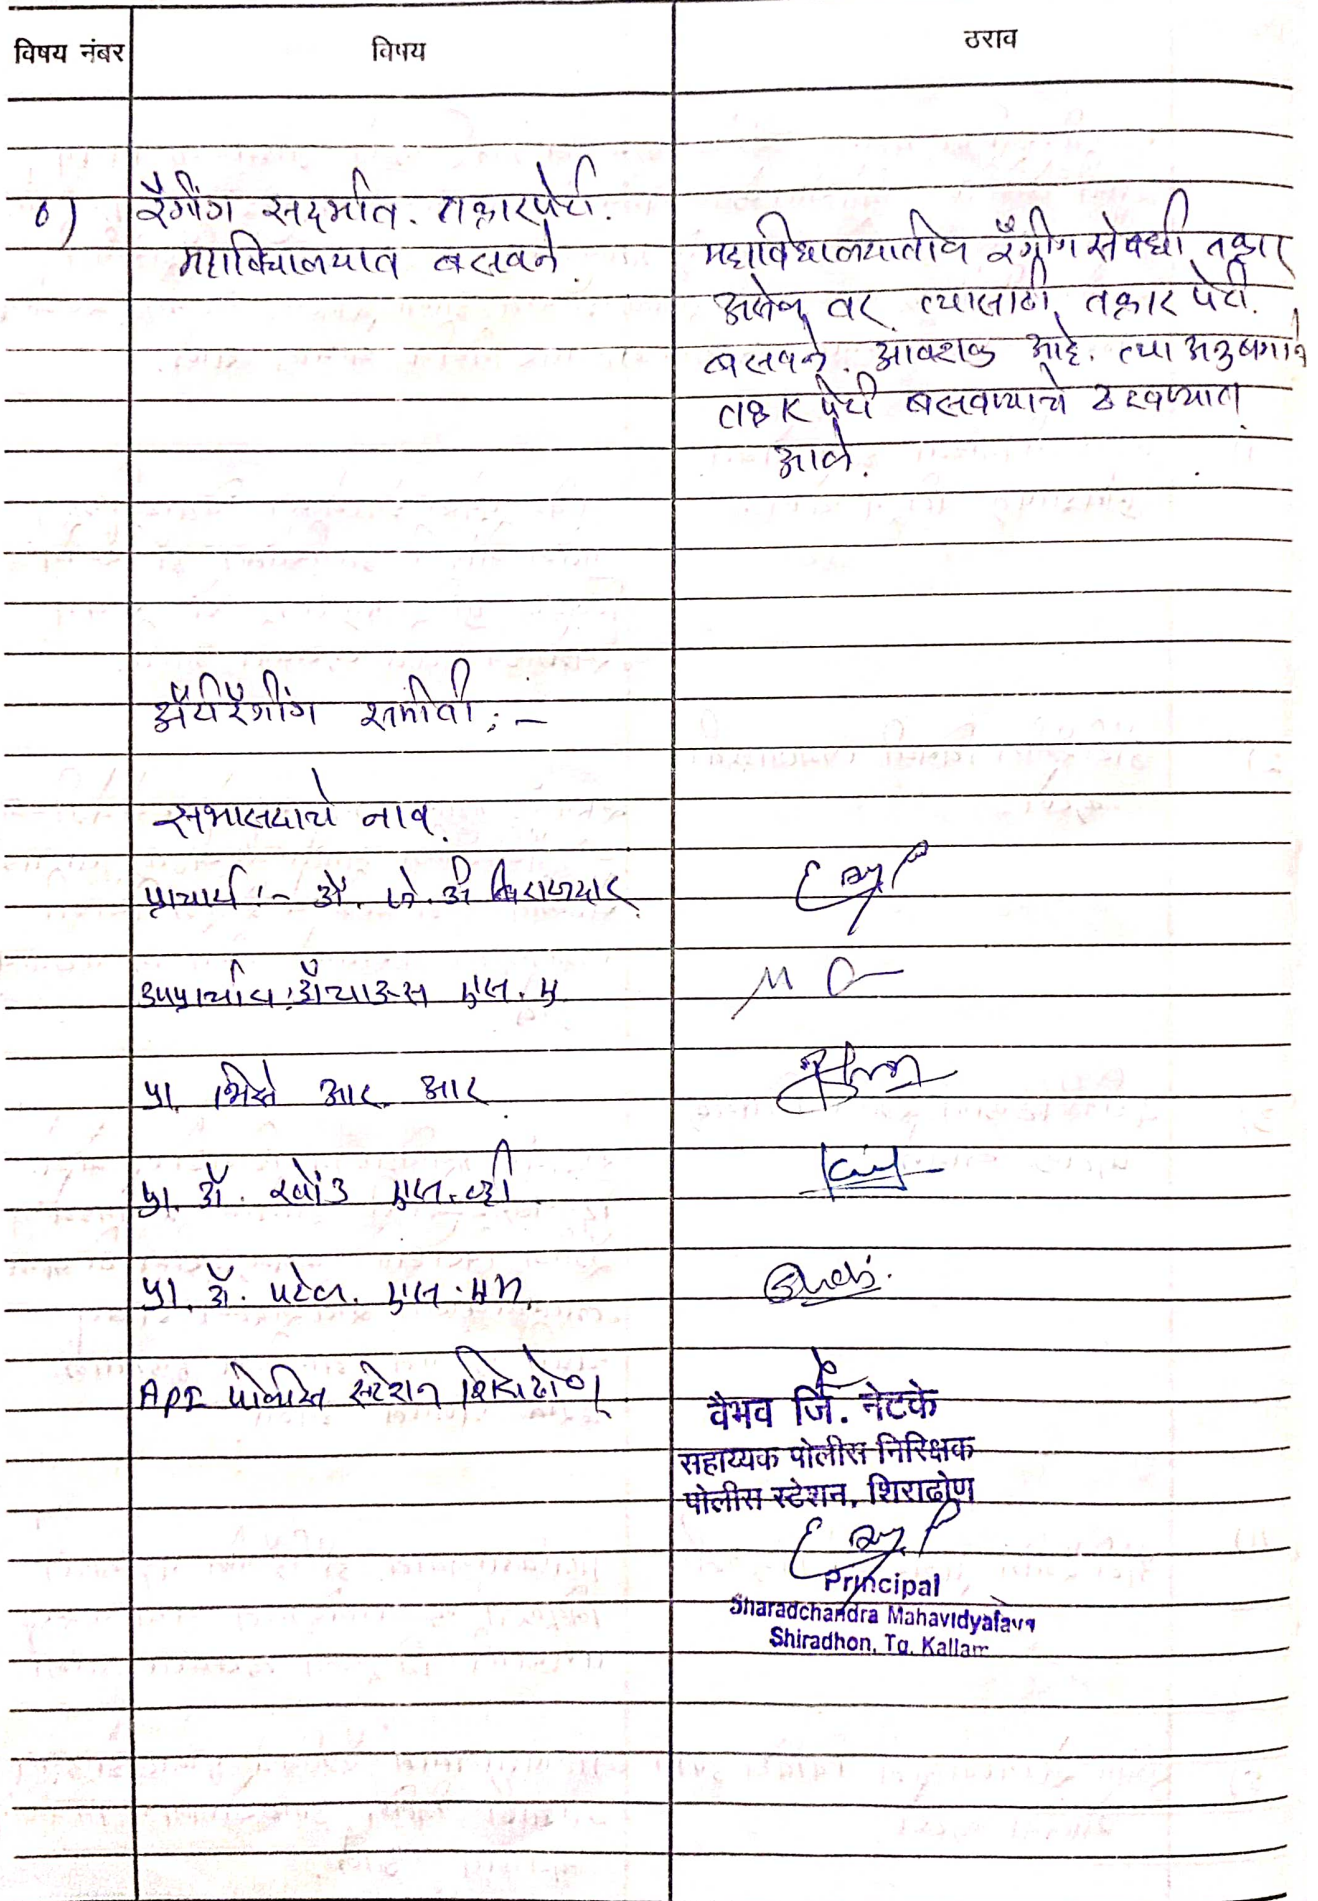 विषय नंबर
विषय
ठराव
रॅगींग सदर्भात. तक्रारपेटी.
महाविद्यालयात बसवने.
महाविद्यालयातील रॅगींग संबधी तक्रार
असेल तर त्यासाठी तक्रार पेटी.
बसवने. आवशक आहे. त्या अनुषगाने
तक्रार पेटी बसवण्याचे ठरवण्यात
आले.
अँटीरॅगींग समीती :-
सभासदाचे नाव
प्राचार्य :- डॉ.
उपप्राचार्य : डॉ एस. ए
प्रा. भिसे आर. आर
प्रा. डॉ. एस. व्ही
प्रा. डॉ. पटेल. एस. एम.
API पोलीस स्टेशन शिराढोण
वैभव जि. नेटके
सहाय्यक पोलीस निरिक्षक
पोलीस स्टेशन, शिराढोण
Principal
Sharadchandra Mahavidyalaya
Shiradhon, Tq. Kallam